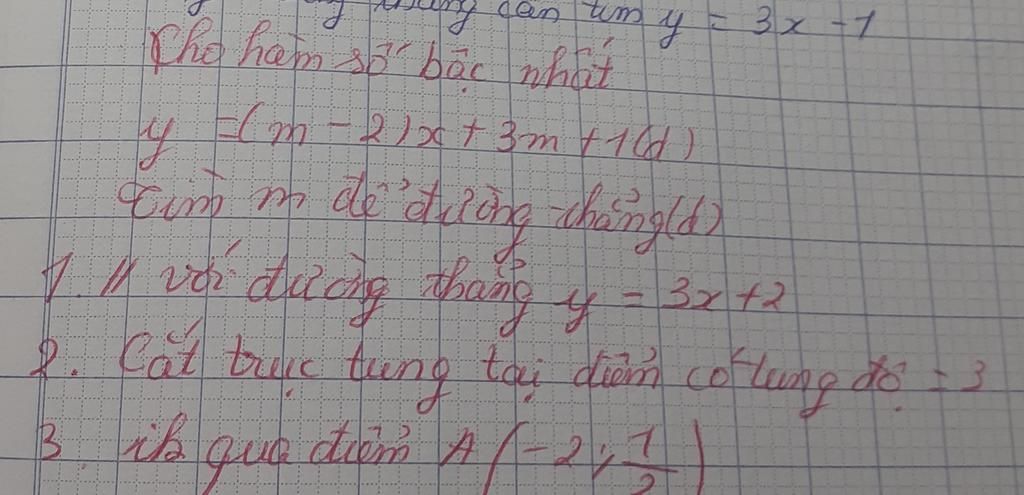 thẳng cần tìm y = 3x - 1
Cho hàm số bậc nhất
y = (m - 2)x + 3m + 1 (d)
tìm m để đường thẳng (d)
1. // với đường thẳng y = 3x + 2
2. Cắt trục tung tại điểm có tung độ = 3
3. đi qua điểm A (-2; 1/2)